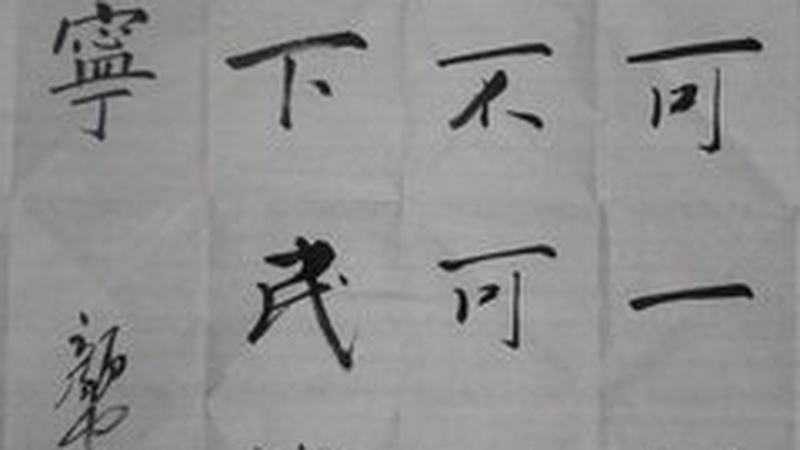 可一
不可
下民
寧